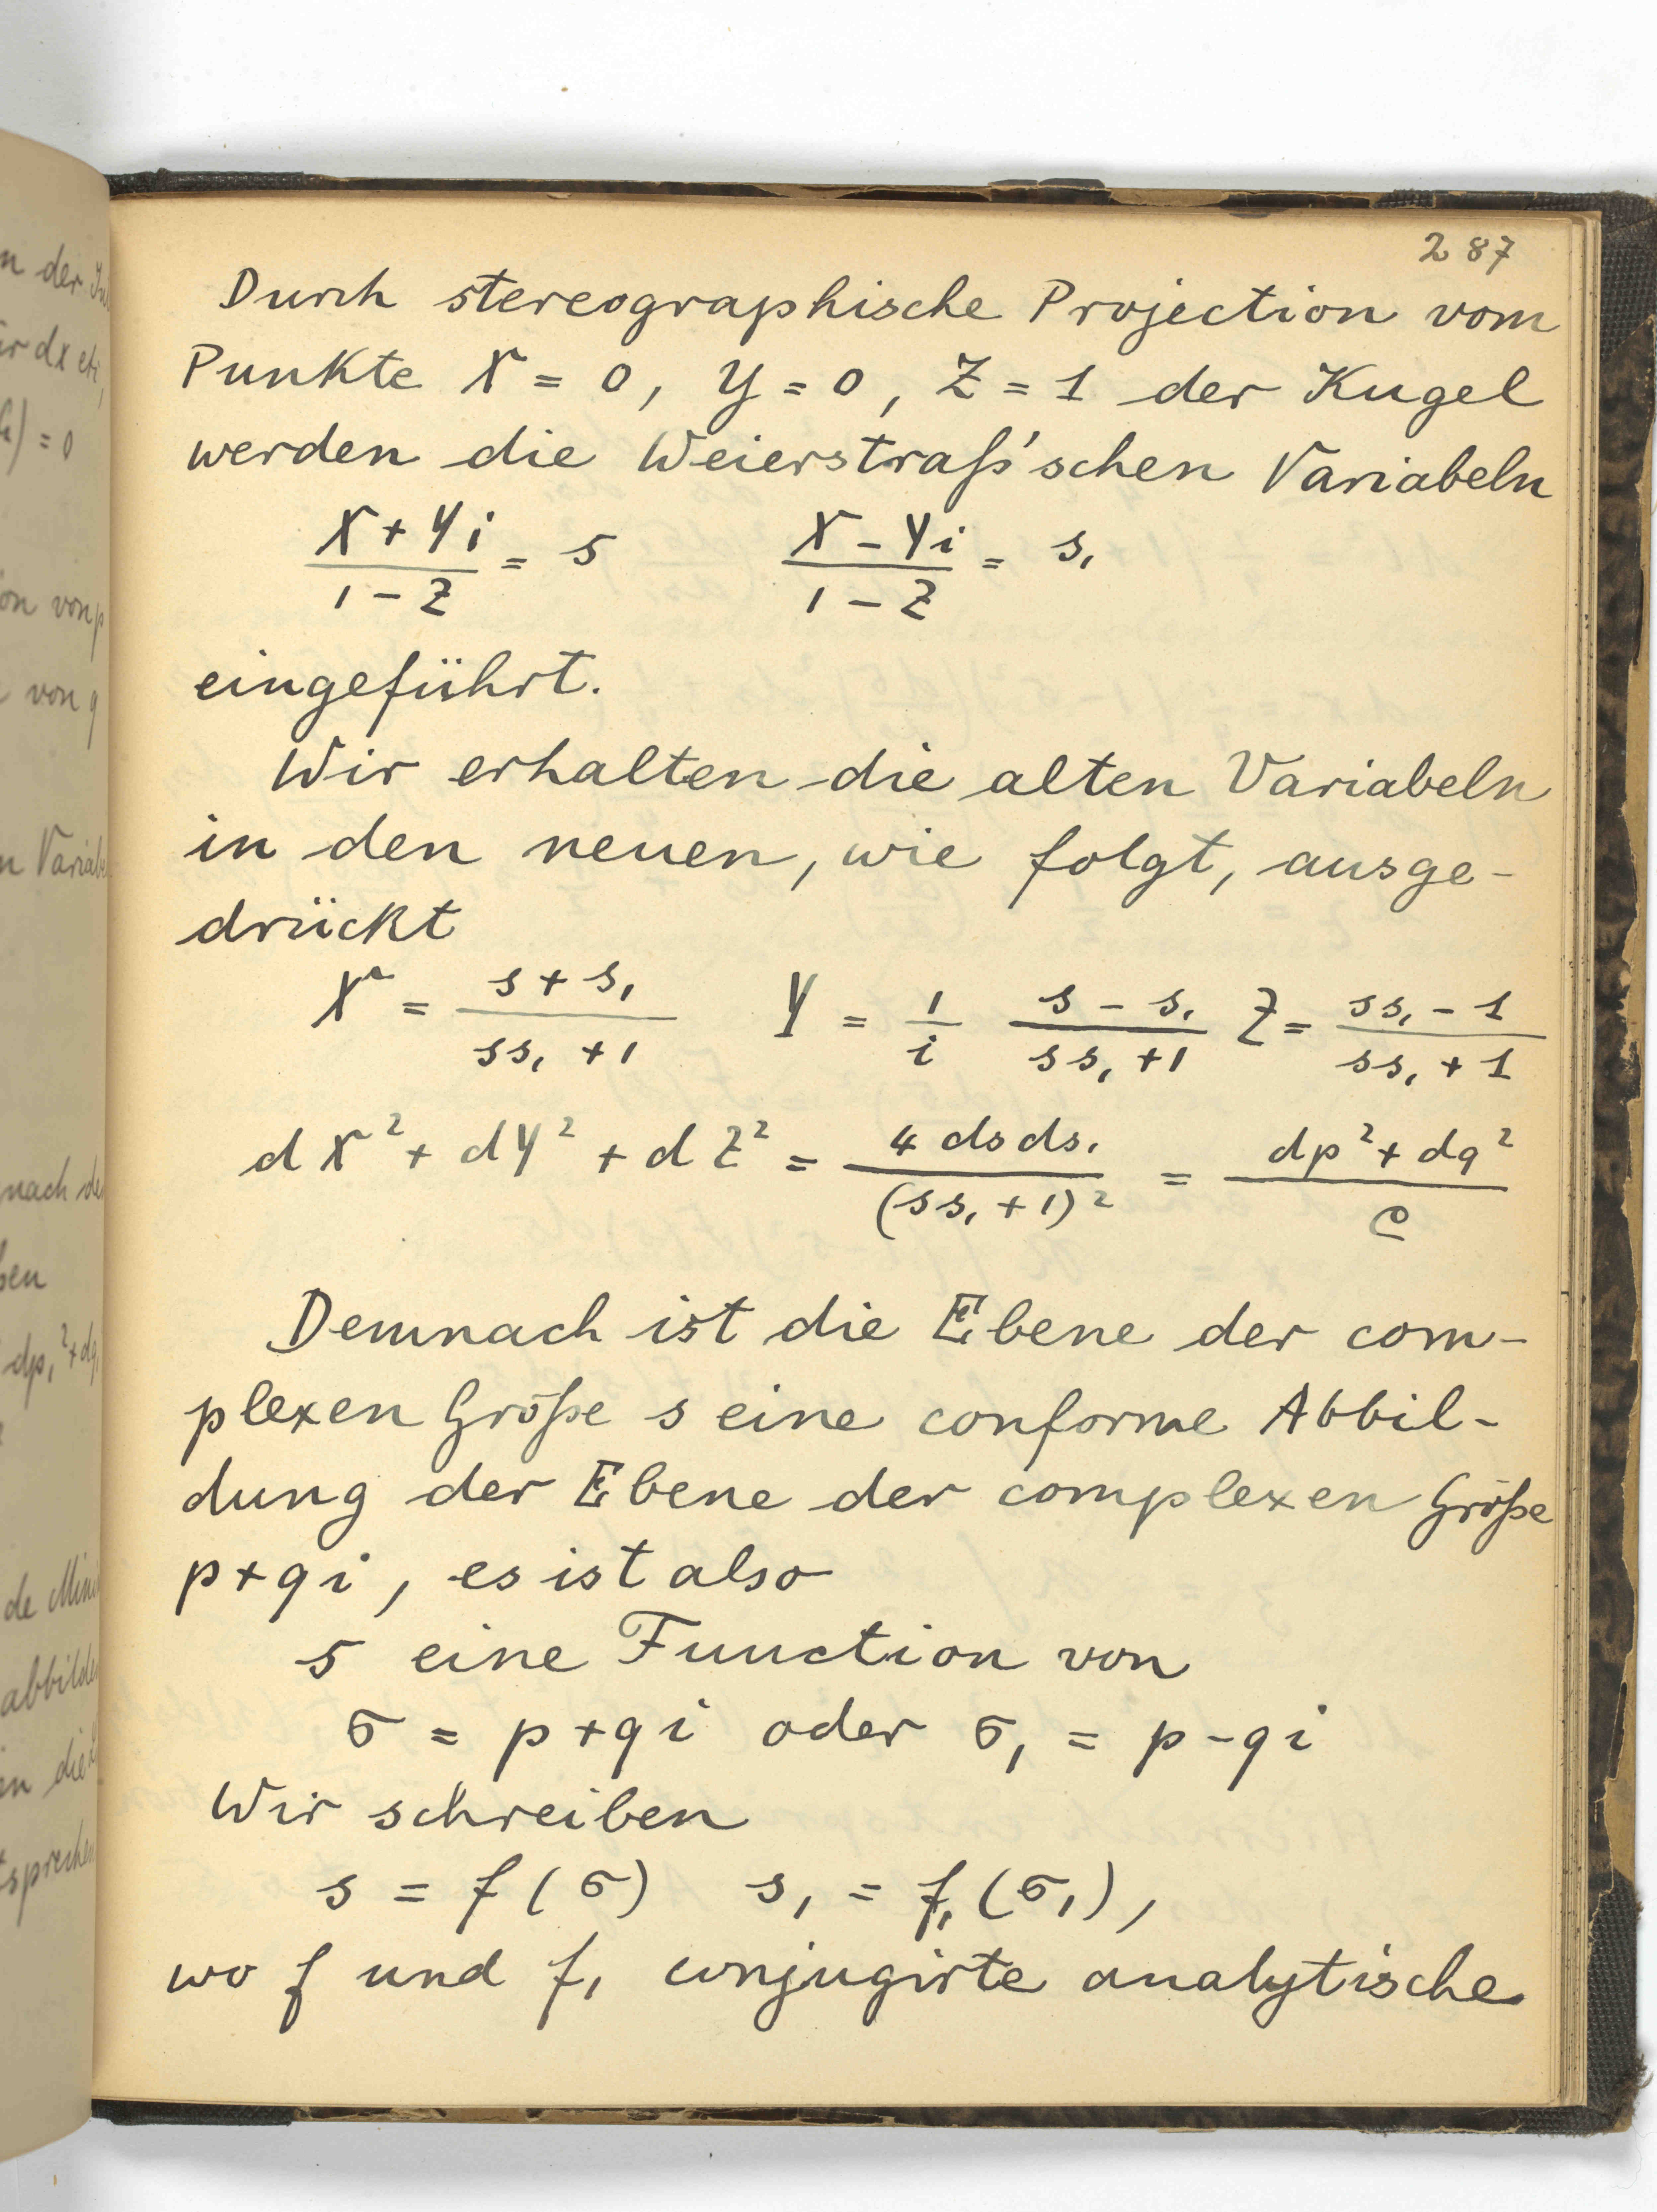 287
Durch stereographische Projection vom
Punkte X = 0, Y = 0, Z = 1 der Kugel
werden die Weierstraß'schen Variabeln
(X + Yi)/(1 - Z) = s (X - Yi)/(1 - Z) = s₁
eingeführt.
Wir erhalten die alten Variabeln
in den neuen, wie folgt, ausge-
drückt
X = (s + s₁)/(ss₁ + 1) Y = 1/i (s - s₁)/(ss₁ + 1) Z = (ss₁ - 1)/(ss₁ + 1)
dX² + dY² + dZ² = 4 ds ds₁/(ss₁ + 1)² = (dp² + dq²)/e
Demnach ist die Ebene der com-
plexen Größe s eine conforme Abbil-
dung der Ebene der complexen Größe
p+qi, es ist also
s eine Function von
σ = p+qi oder σ₁ = p-qi
Wir schreiben
s = f(σ) s₁ = f₁(σ₁),
wo f und f₁ conjugirte analytische
n der
ir dx etc,
) = 0
on von p
von q
n Variabe
nach de
ben
dp₁² + dq₁
de Mini
abbilde
in die
tsprechen